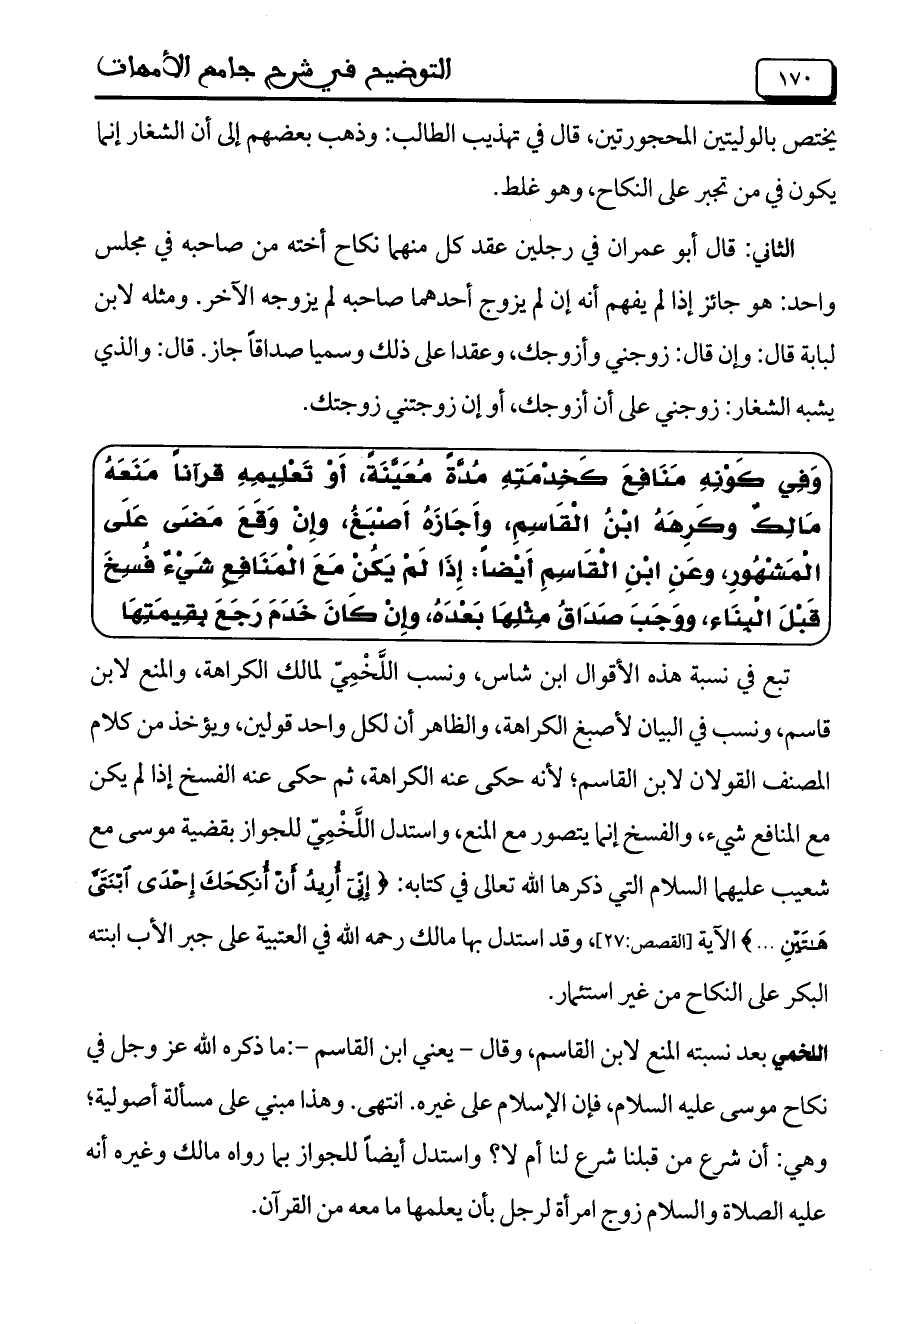 ١٧٠
التوضيح في شرح جامع الأمهات
يختص بالوليتين المحجورتين، قال في تهذيب الطالب: وذهب بعضهم إلى أن الشغار إنما
يكون في من تجبر على النكاح، وهو غلط.
الثاني: قال أبو عمران في رجلين عقد كل منهما نكاح أخته من صاحبه في مجلس
واحد: هو جائز إذا لم يفهم أنه إن لم يزوج أحدهما صاحبه لم يزوجه الآخر. ومثله لابن
لبابة قال: وإن قال: زوجني وأزوجك، وعقدا على ذلك وسميا صداقاً جاز. قال: والذي
يشبه الشغار: زوجني على أن أزوجك، أو إن زوجتني زوجتك.
وَفِي كَوْنِهِ مَنَافِعَ كَخِدْمَتِهِ مُدَّةً مُعَيَّنَةً، أَوْ تَعْلِيمِهِ قرآناً مَنَعَهُ
مَالِكٌ وكَرِهَهُ ابْنُ الْقَاسِمِ، وأَجَازَهُ أَصْبَغُ، وإِنْ وَقَعَ مَضَى عَلَى
الْمَشْهُورِ، وعَنِ ابْنِ الْقَاسِمِ أَيْضاً: إِذَا لَمْ يَكُنْ مَعَ الْمَنَافِعِ شَيْءٌ فُسِخَ
قَبْلَ الْبِنَاءِ، ووَجَبَ صَدَاقُ مِثْلِهَا بَعْدَهُ، وإِنْ كَانَ خَدَمَ رَجَعَ بِقِيمَتِهَا
تبع في نسبة هذه الأقوال ابن شاس، ونسب اللَّخْمِيّ لمالك الكراهة، والمنع لابن
قاسم، ونسب في البيان لأصبغ الكراهة، والظاهر أن لكل واحد قولين، ويؤخذ من كلام
المصنف القولان لابن القاسم؛ لأنه حكى عنه الكراهة، ثم حكى عنه الفسخ إذا لم يكن
مع المنافع شيء، والفسخ إنما يتصور مع المنع، واستدل اللَّخْمِيّ للجواز بقضية موسى مع
شعيب عليهما السلام التي ذكرها الله تعالى في كتابه: ﴿ إِنِّىٓ أُرِيدُ أَنْ أُنكِحَكَ إِحْدَى ٱبْنَتَىَّ
هَـٰتَيْنِ ...﴾ الآية [القصص:٢٧]، وقد استدل بها مالك رحمه الله في العتبية على جبر الأب ابنته
البكر على النكاح من غير استئمار.
اللخمي بعد نسبته المنع لابن القاسم، وقال – يعني ابن القاسم –:ما ذكره الله عز وجل في
نكاح موسى عليه السلام، فإن الإسلام على غيره. انتهى. وهذا مبني على مسألة أصولية؛
وهي: أن شرع من قبلنا شرع لنا أم لا؟ واستدل أيضاً للجواز بما رواه مالك وغيره أنه
عليه الصلاة والسلام زوج امرأة لرجل بأن يعلمها ما معه من القرآن.